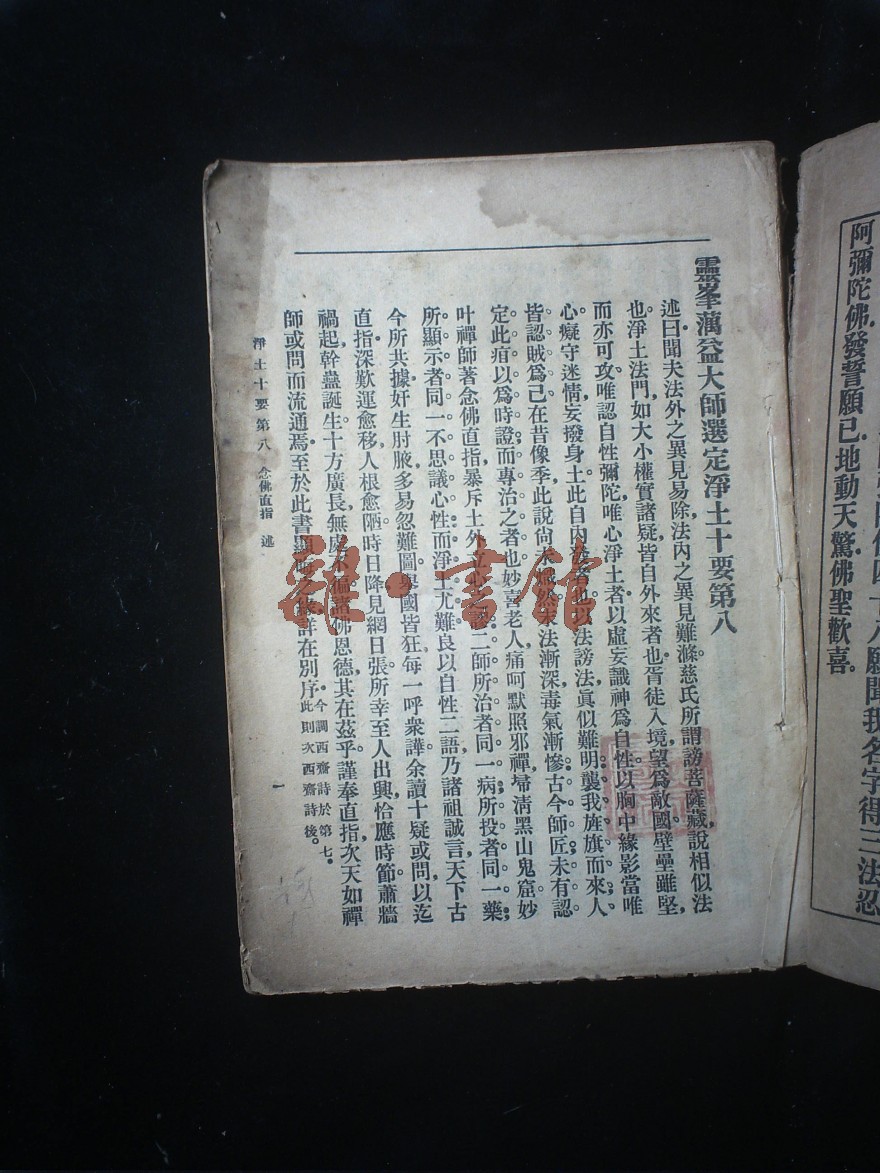 陀佛四十八願聞我名字得三法忍
阿彌陀佛發誓願已地動天驚佛聖歡喜。
靈峯蕅益大師選定淨土十要第八
述曰聞夫法外之異見易除法內之異見難滌慈氏所謂謗菩薩藏說相似法
也淨土法門如大小權實諸疑皆自外來者也胥徒入境望為敵國壁壘雖堅
而亦可攻唯認自性彌陀唯心淨土者以虛妄識神為自性以胸中緣影當唯
心癡守迷情妄撥身土此自內發者也以法謗法真似難明襲我旌旗而來人
皆認賊為己在昔像季此說尚未熾然末法漸深毒氣漸慘古今師匠未有認
定此疽以為時證而專治之者也妙喜老人痛呵默照邪禪埽清黑山鬼窟妙
叶禪師著念佛直指暴斥土外立心之謬二師所治者同一病所投者同一藥
所顯示者同一不思議心性而淨土尤難良以自性二語乃諸祖誠言天下古
今所共據奸生肘腋多易忽難圖舉國皆狂每一呼衆譁余讀十疑或問以迄
直指深歎運愈移人根愈陋時日降見網日張所幸至人出興恰應時節蕭牆
禍起幹蠱誕生十方廣長無處不徧諸佛恩德其在茲乎謹奉直指次天如禪
師或問而流通焉至於此書顯晦之緣詳在別序今調西齋詩於第七。
此則次西齋詩後。
淨土十要第八 念佛直指 述
一
雜·書館